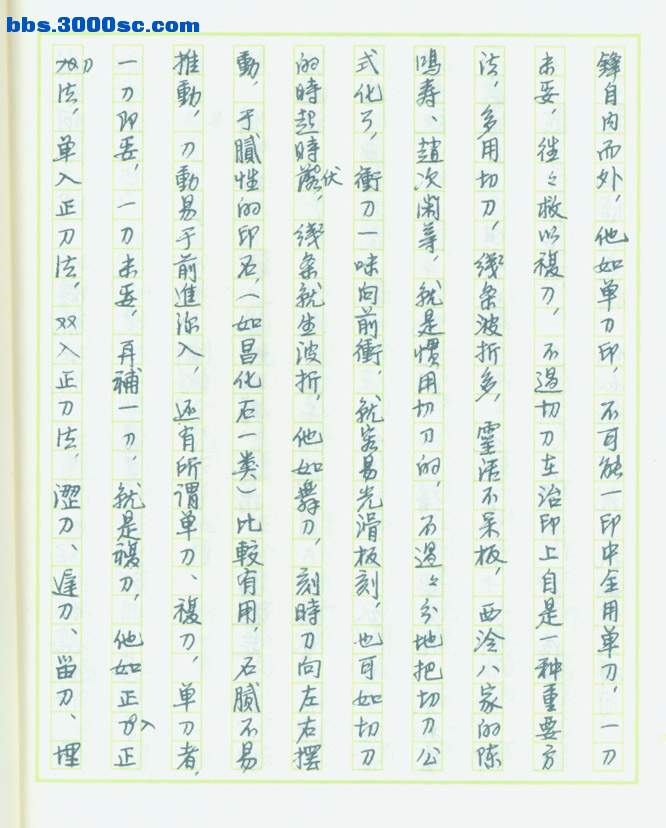 bbs.3000sc.com
鋒自内而外，他如单刀印，不可能一印中全用单刀，一刀
未妥，往々救以複刀，不過切刀在治印上自是一种重要方
法，多用切刀，线条波折多，靈活不呆板，西泠八家的陈
鸣寿、趙次闲等，就是慣用切刀的，不過々分地把切刀公
式化了，衝刀一味向前衝，就容易光滑板刻，也可如切刀
的時起時伏，线条就生波折，他如舞刀，刻時刀向左右摆
動，于腻性的印石，（如昌化石一类）比較有用，石腻不易
推動，刀動易于前進深入，还有所谓单刀、複刀，单刀者，
一刀即妥，一刀未妥，再補一刀，就是複刀，他如正入正
刀法，单入正刀法，双入正刀法，澀刀、遅刀、留刀、埋